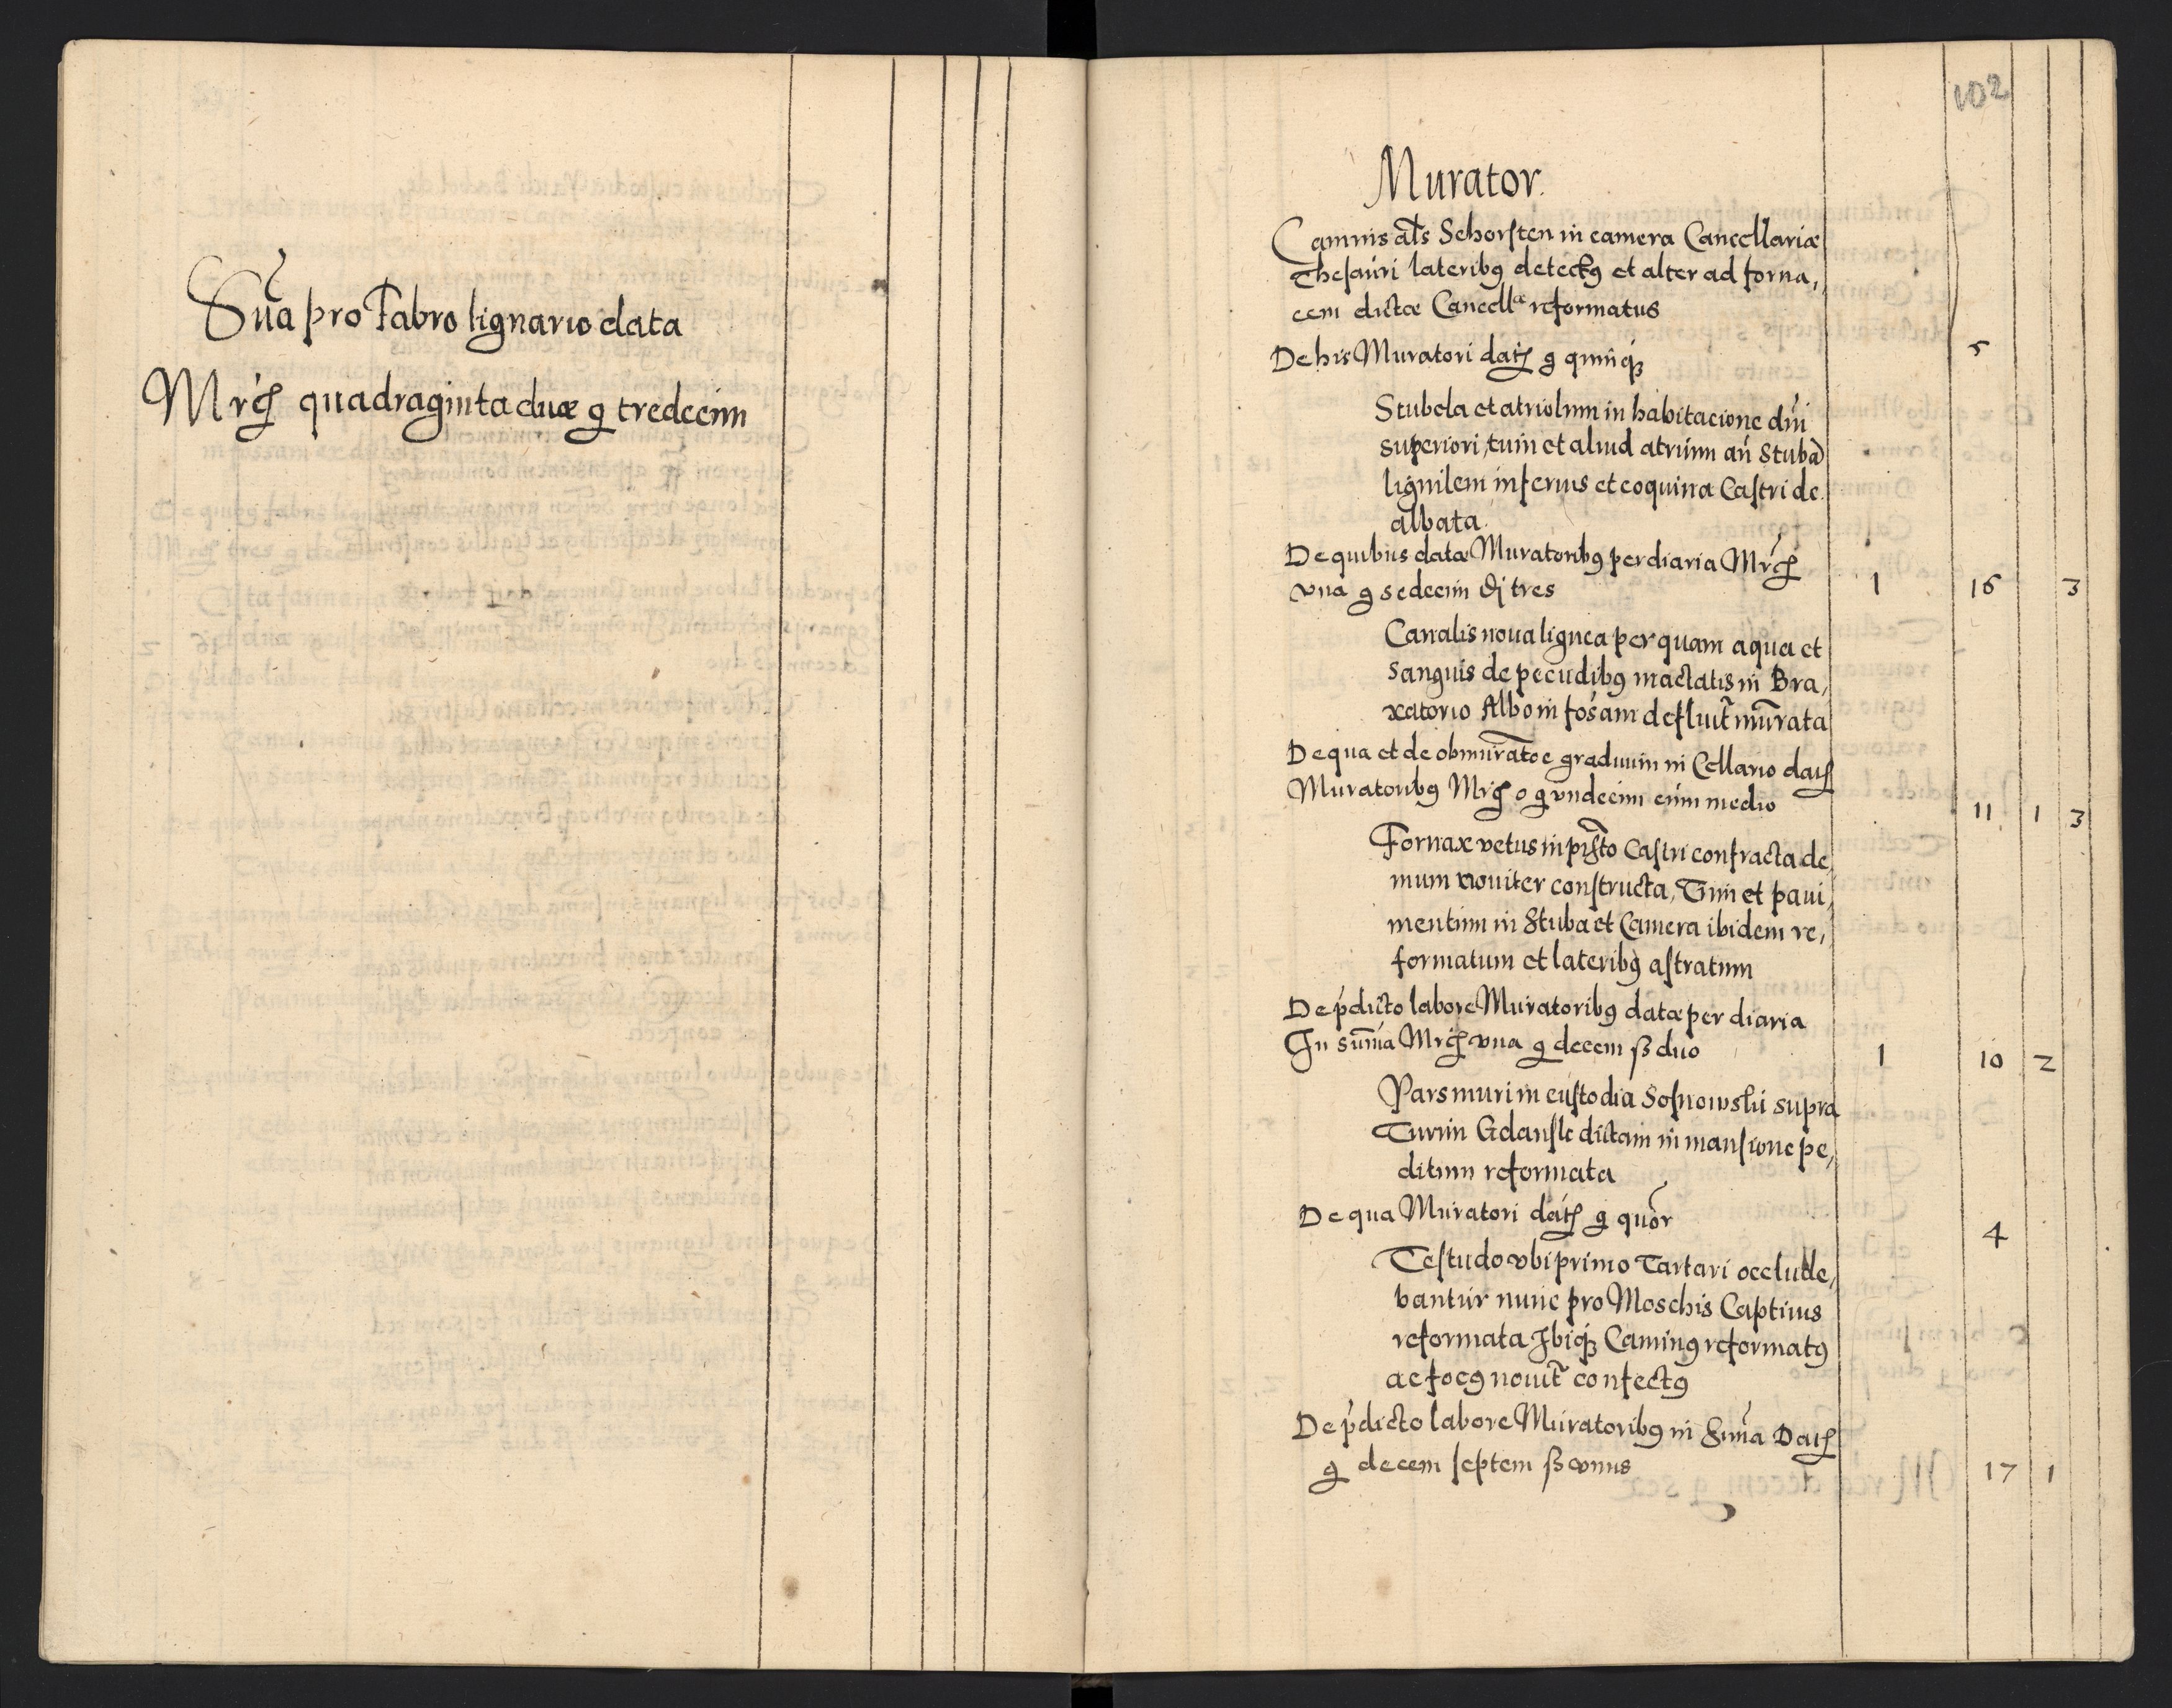 Sūa pro Fabro lignario data
Mrcʒ quadraginta duæ g tredecim
102
Murator.
Caminis al̄s Schorsten in camera Cancellariæ
Thesauri lateribꝰ detectꝰ et alter ad forna,,
cem dictæ Cancellæ reformatus
De his Muratori datʒ g quinqʒ 5
Stubela et atriolum in habitacione dn̄i
superiori, tum et aliud atrium an̄ Stubā
lignilem inferius et coquina Castri de
albata.
De quibus datæ Muratoribꝰ per diaria Mrcʒ
vna g sedecim ₰ tres 1 16 3
Canalis noua lignea per quam aqua et
sanguis de pecudibꝰ mactatis in Bra,
xatorio Albo in fossam defluit murata
De qua et de obmuratōe graduum in Cellario datʒ
Muratoribꝰ Mrcʒ o g vndecim cum medio 11 1 3
Fornax vetus in pisto Castri confracta de,
mum nouiter constructa, Tum et paui,
mentum in Stuba et Camera ibidem re,
formatum et lateribꝰ astratum
De p̄dicto labore Muratoribꝰ datæ per diaria
In summa Mrcʒ vna g decem ß duo 1 10 2
Pars muri in custodia Sosnowski supra
Turrim Gdansk dictam in mansione pe,
ditum reformata
De qua Muratori datʒ g quōr 4
Testudo vbi primo Tartari occlude,
bantur nunc pro Moschis Captiuis
reformata Ibiqʒ Caminꝰ reformatꝰ
ac focꝰ nouit̄ confectꝰ
De p̄dicto labore Muratoribꝰ in Suma Datʒ
g decem septem ß vnus 17 1